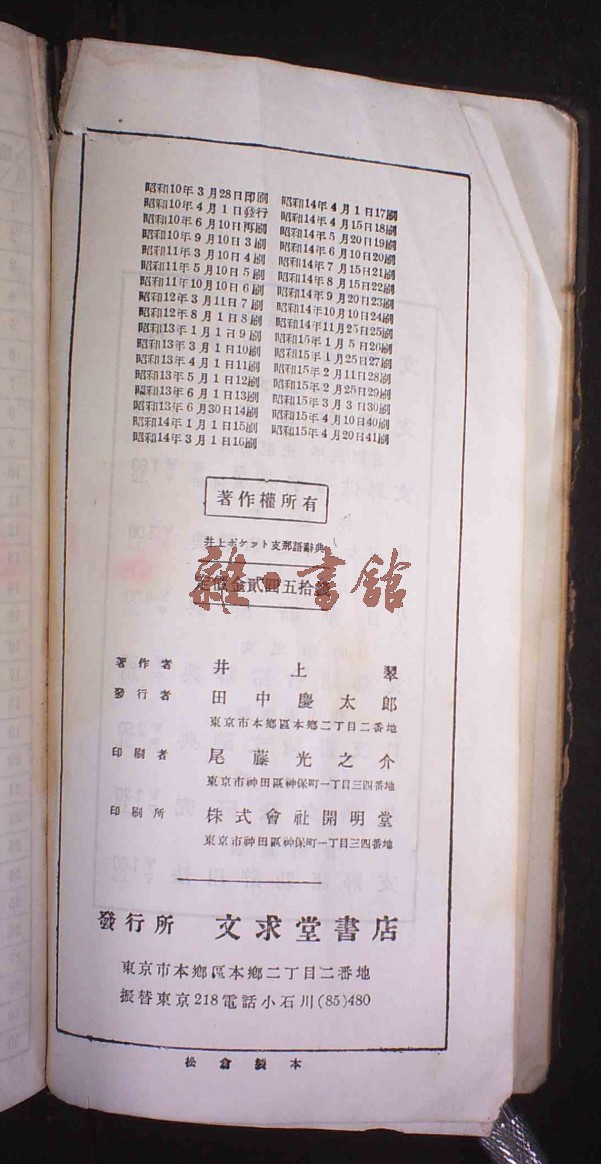 昭和10年3月28日印刷
昭和10年4月1日發行
昭和10年6月10日再刷
昭和10年9月10日3刷
昭和11年3月10日4刷
昭和11年5月10日5刷
昭和11年10月10日6刷
昭和12年3月11日7刷
昭和12年8月1日8刷
昭和13年1月1日9刷
昭和13年3月1日10刷
昭和13年4月1日11刷
昭和13年5月1日12刷
昭和13年6月1日13刷
昭和13年6月30日14刷
昭和14年1月1日15刷
昭和14年3月1日16刷
昭和14年4月1日17刷
昭和14年4月15日18刷
昭和14年5月20日19刷
昭和14年6月10日20刷
昭和14年7月15日21刷
昭和14年8月15日22刷
昭和14年9月20日23刷
昭和14年10月10日24刷
昭和14年11月25日25刷
昭和15年1月5日26刷
昭和15年1月25日27刷
昭和15年2月11日28刷
昭和15年2月25日29刷
昭和15年3月3日30刷
昭和15年4月10日40刷
昭和15年4月20日41刷
著作權所有
井上ポケット支那語辭典
定價金貳圓五拾錢
雜·書館
著作者 井上翠
發行者 田中慶太郎
東京市本鄕區本鄕二丁目二番地
印刷者 尾藤光之介
東京市神田區神保町一丁目三四番地
印刷所 株式會社開明堂
東京市神田區神保町一丁目三四番地
發行所 文求堂書店
東京市本鄕區本鄕二丁目二番地
振替東京218電話小石川(85)480
松倉製本